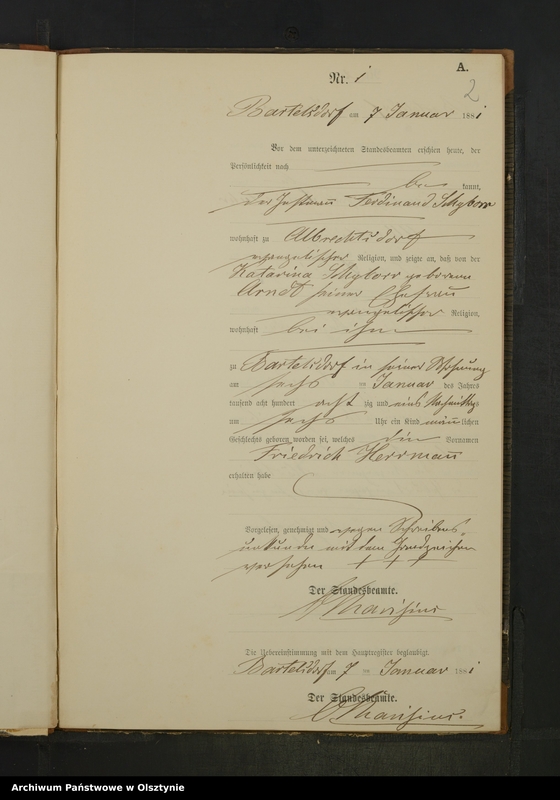 A.
2
Nr. 1
Bartelsdorf am 7 Januar 1881
Vor dem unterzeichneten Standesbeamten erschien heute, der
Persönlichkeit nach
be kannt,
der Instmann Ferdinand
wohnhaft zu Albrechtsdorf
evangelischer Religion, und zeigte an, daß von der
Katarina geborenen
Arndt seiner Ehefrau
evangelischer Religion,
wohnhaft bei ihm
zu Bartelsdorf in seiner Wohnung
am sechs ten Januar des Jahres
tausend acht hundert acht zig und eins Nachmittags
um sechs Uhr ein Kind männlichen
Geschlechts geboren worden sei, welches die Vornamen
Friedrich Herrmann
erhalten habe
Vorgelesen, genehmigt und wegen Schreibens-
unkunde mit dem Handzeichen
versehen + + +
Der Standesbeamte.
Die Uebereinstimmung mit dem Hauptregister beglaubigt.
Bartelsdorf am 7 ten Januar 1881
Der Standesbeamte.
Archiwum Państwowe w Olsztynie